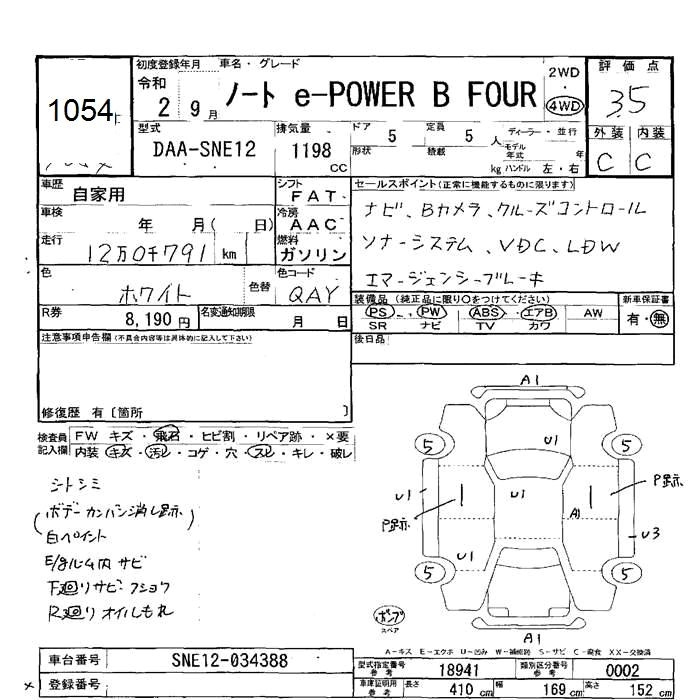 1054
初度登録年月
令和
2 9月
車名・グレード
ノート e-POWER B FOUR
2WD
4WD
評価点
3.5
外装 内装
C C
型式
DAA-SNE12
排気量
1198
CC
ドア 5
定員 5 人
形状
積載 kg
ディーラー・並行
モデル年式 年
ハンドル 左・右
車歴
自家用
シフト
FAT
車検
年 月( 日)
冷房
AAC
走行
12万0千791 km
燃料
ガソリン
色
ホワイト
色替
色コード
QAY
R券
8,190円
名変通知期限
月 日
セールスポイント(正常に機能するものに限ります)
ナビ、Bカメラ、クルーズコントロール
ソナーシステム、VDC、LDW
エマージェンシーブレーキ
装備品(純正品に限り○をつけてください)
PS PW ABS エアB AW
SR ナビ TV カワ
新車保証書
有・無
後日品
注意事項申告欄(不具合内容等は具体的に記入して下さい)
修復歴 有〔箇所 〕
検査員記入欄
FW キズ・飛石・ヒビ割・リペア跡・×要
内装 キズ・汚レ・コゲ・穴・スレ・キレ・破レ
シトシミ
(ボデーカンバン消し跡)
白ペイント
E/gルーム内サビ
下廻りサビ・フショク
R廻りオイルもれ
A1
5
5
U1
U1
P跡
U1
A1
P跡
U3
U1
5
5
A1
ポンプ
スペア
A-キズ E-エクボ U-凹み W-補修跡 S-サビ C-腐食 XX-交換済
車台番号
SNE12-034388
登録番号
型式指定番号 参考
18941
類別区分番号 参考
0002
車庫証明用 参考
長さ 410 cm
幅 169 cm
高さ 152 cm